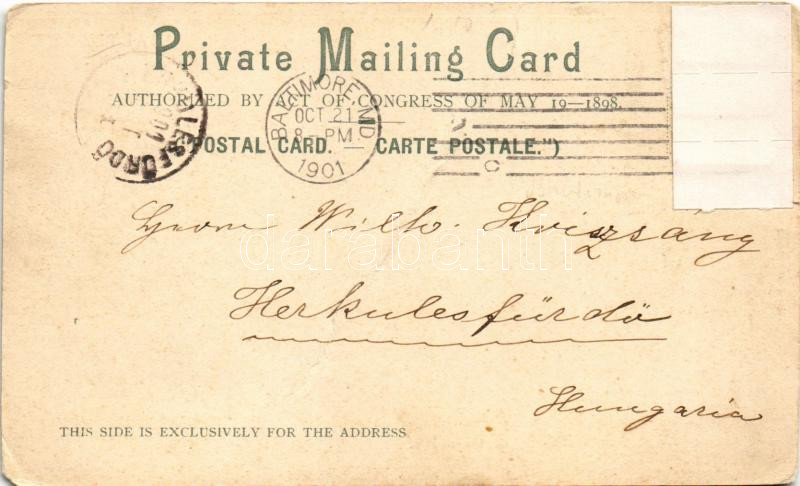 Private Mailing Card
AUTHORIZED BY ACT OF CONGRESS OF MAY 19—1898.
POSTAL CARD. — CARTE POSTALE.")
BALTIMORE, MD.
OCT 21
8 - PM
1901
Herrn Wilh.
Herkulesfürdö
Hungaria
THIS SIDE IS EXCLUSIVELY FOR THE ADDRESS
darabanth